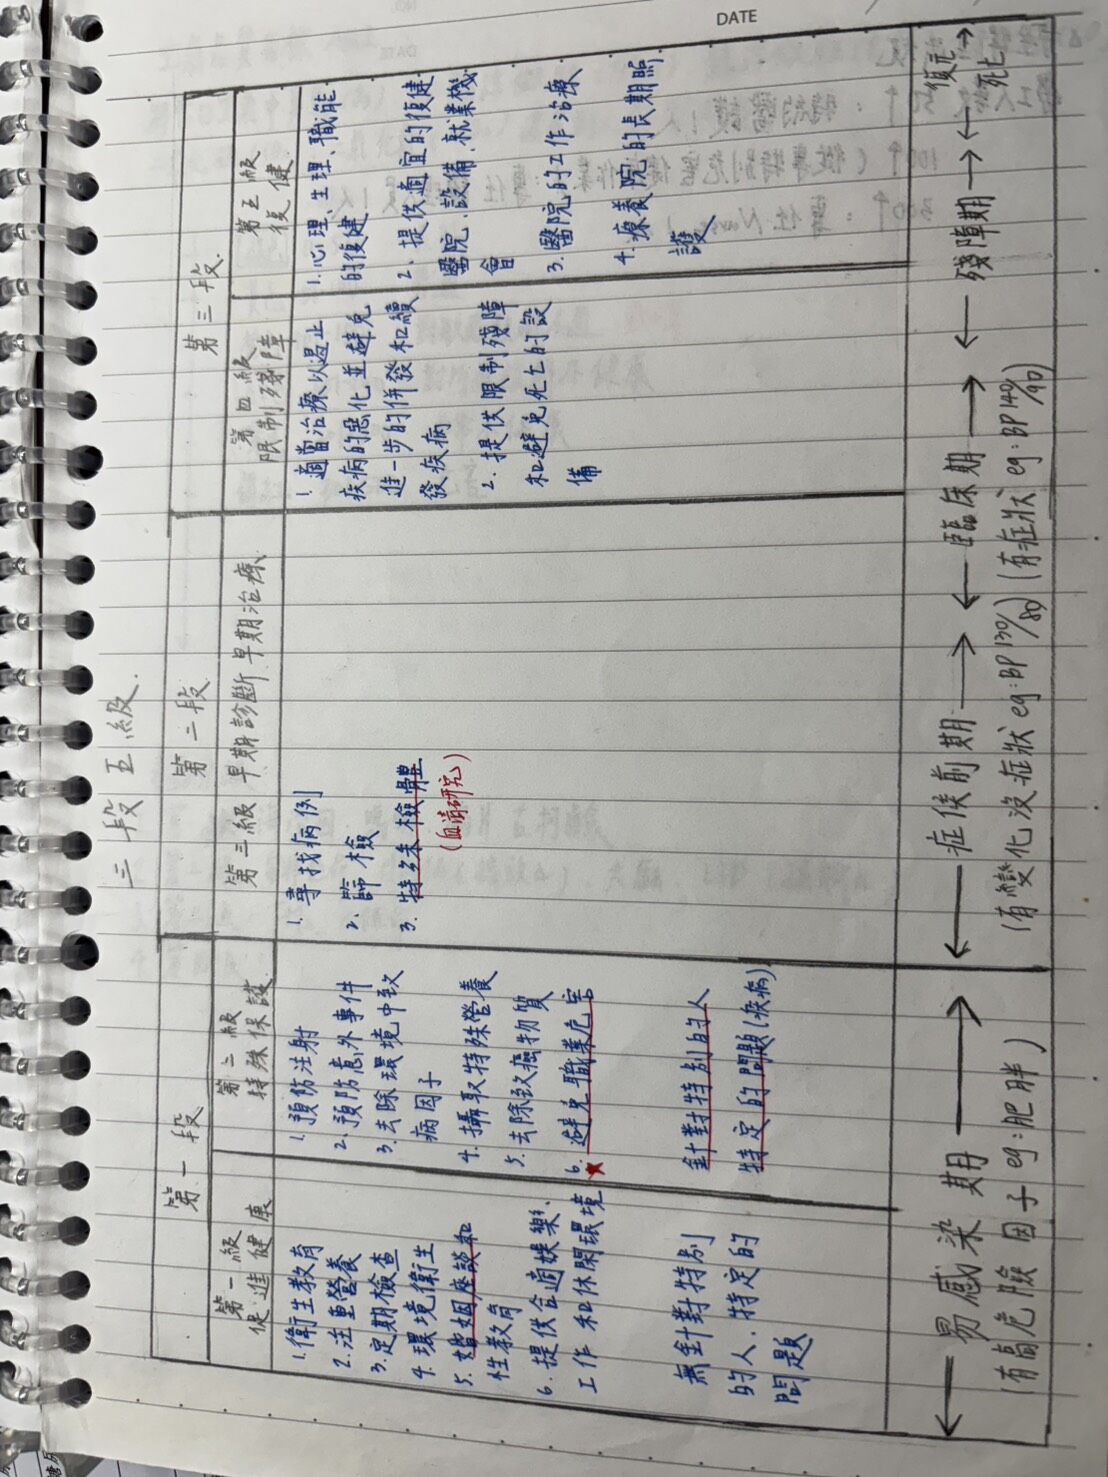 DATE
三段五級.
第一段
第二段
第三段.
第一級
促進健康
第二級
特殊保護
第三級 早期診斷.早期治療.
第四級
限制殘障
第五級
復健
1.衛生教育
2.注重營養
3.定期檢查
4.環境衛生
5.婚姻座談和
性教育
6.提供合適娛樂、
工作和休閑環境
無針對特別
的人、特定的
問題
1.預防注射
2.預防意外事件
3.去除環境中致
病因子
4.攝取特殊營養
5.去除致癌物質
★6.避免職業危害
針對特別的人
特定的問題(疾病)
1.尋找病例
2.篩檢
3.特殊檢體
(血清研究)
1.適當治療以遏止
疾病的惡化並避免
進一步的併發和續
發疾病
2.提供限制殘障
和避免死亡的設
備
1.心理、生理、職能
的復健
2、提供適宜的復健
醫院、設備、就業機
會
3.醫院的工作治療
4.療養院的長期照
護
←易感染期→
(有高危險因子eg:肥胖)
←症候前期→
(有變化沒症狀eg:BP130/80)
←臨床期→
(有症狀eg:BP140/90)
←殘障期→
←復元→
死亡